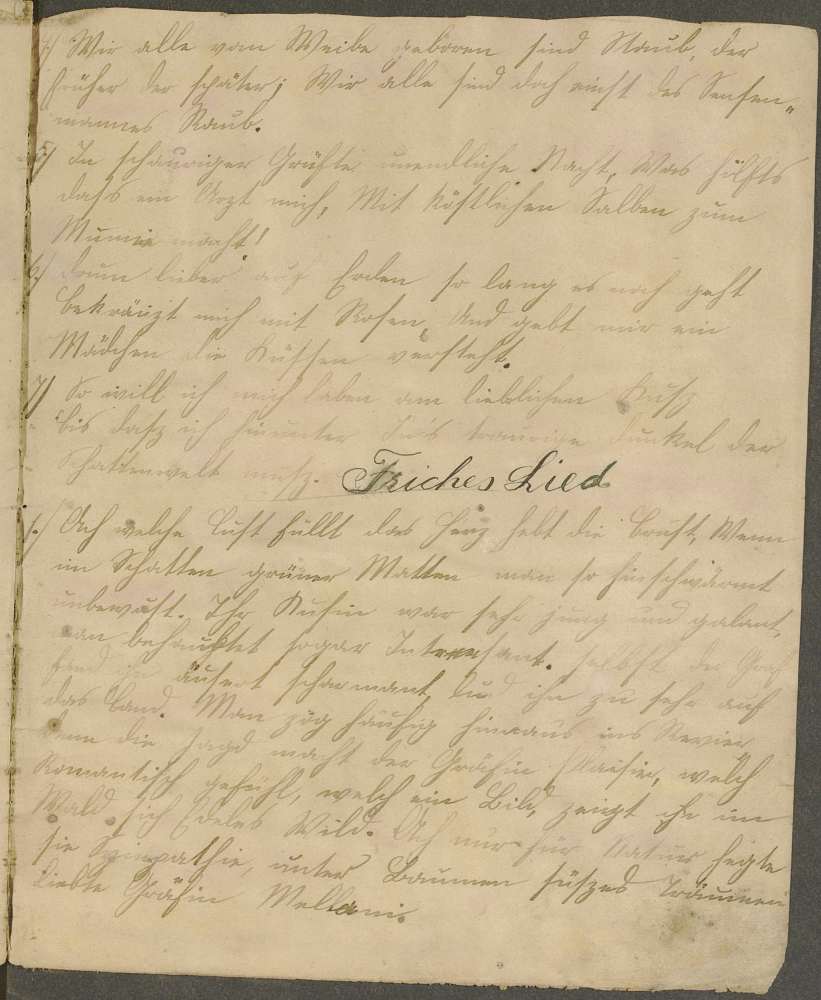 4) Wir alle vom Weibe geboren sind Staub, der
früher der später; Wir alle sind doch einst des Sensen„
mannes Raub.
5) In schauriger Grüfte unendliche Nacht, Was hilfts
dass ein Arzt mich, Mit köstlichen Salben zum
Mumie macht!
6) Drum lieber auf Erden so lang es noch geht
bekränzt mich mit Rosen, Und gebt mir ein
Mädchen die Küssen versteht.
7) So will ich mich laben am lieblichen Kusz
bis dasz ich hinunter In's traurige Dunkel der
Schattenwelt musz. Friches Lied
1.) Ach welche Lust füllt das Herz hebt die Brust, Wenn
im Schatten grüner Matten man so hinschwärmt
unbewust. Ihr Kusin war sehr jung und galant,
man behauptet sogar Intressant. selbst der Graf
fand ihn äusert scharmant, lud ihn zu sehr auf
das Land. Man zog häufig hinaus ins Revier,
denn die Jagd macht der Gräfin Plaisir, welch
Romantisch gefühl, welch ein Bild, zeigt ihr im
Wald sich Edeles Wild. Ach nur für Natur hegte
sie Simpathie, unter Baumen süszes Träumen
liebte Gräfin Mellani.